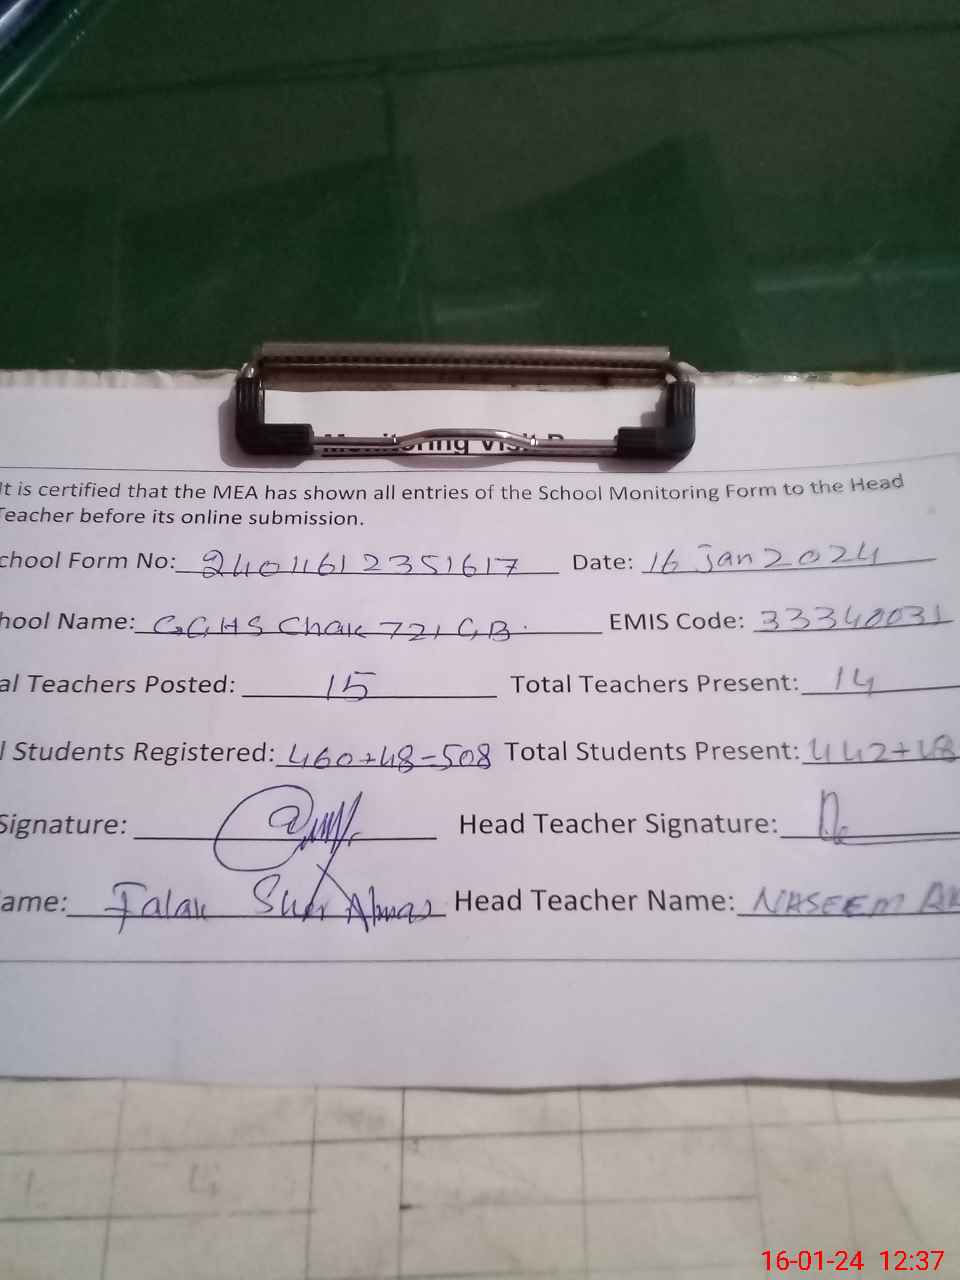 It is certified that the MEA has shown all entries of the School Monitoring Form to the Head
Teacher before its online submission.
chool Form No: 24011612351617 Date: 16 Jan 2024
hool Name: GGHS Chak 721 GB. EMIS Code: 33340031
al Teachers Posted: 15 Total Teachers Present: 14
l Students Registered: 460+48-508 Total Students Present: 442+48
Signature: Head Teacher Signature:
ame: Falak Sher Head Teacher Name: NASEEM
16-01-24 12:37